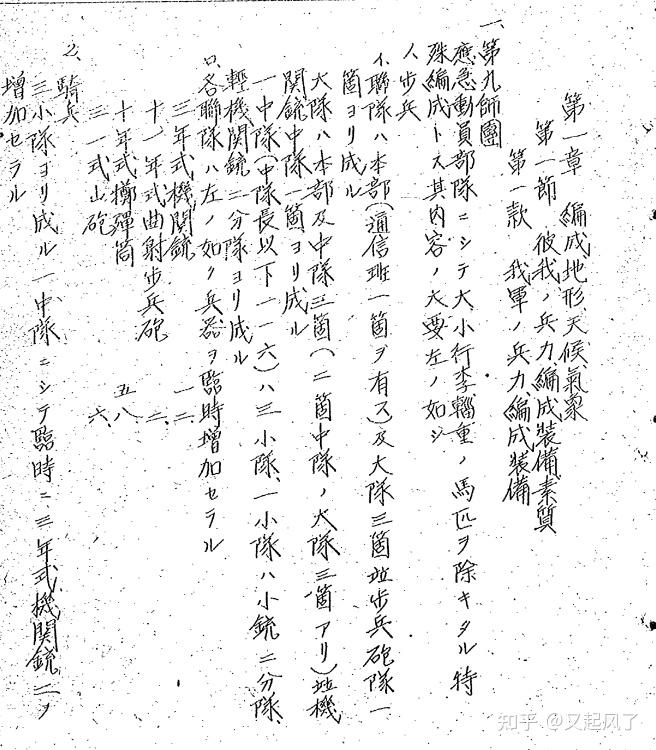 第一章 編成地形天候氣象
第一節 彼我ノ兵力編成裝備素質
第一款 我軍ノ兵力編成裝備
一、第九師團
應急動員部隊ニシテ大小行李輜重ノ馬匹ヲ除キタル特
殊編成トス其內容ノ大要左ノ如シ
1、步兵
イ、聯隊ハ本部(通信班一箇ヲ有ス)及大隊三箇竝步兵砲隊一
箇ヨリ成ル
大隊ハ本部及中隊三箇(二箇中隊ノ大隊三箇アリ)竝機
関銃中隊一箇ヨリ成ル
一中隊(中隊長以下一一六)ハ三小隊、一小隊ハ小銃二分隊、
輕機関銃二分隊ヨリ成ル
ロ、各聯隊ハ左ノ如ク兵器ヲ臨時增加セラル
三年式機関銃 一二、
十一年式曲射步兵砲 二、
十年式擲彈筒 五八、
三一式山砲 六、
2、騎兵
三小隊ヨリ成ル一中隊ニシテ臨時ニ三年式機関銃二ヲ
增加セラル
知乎 @又起风了